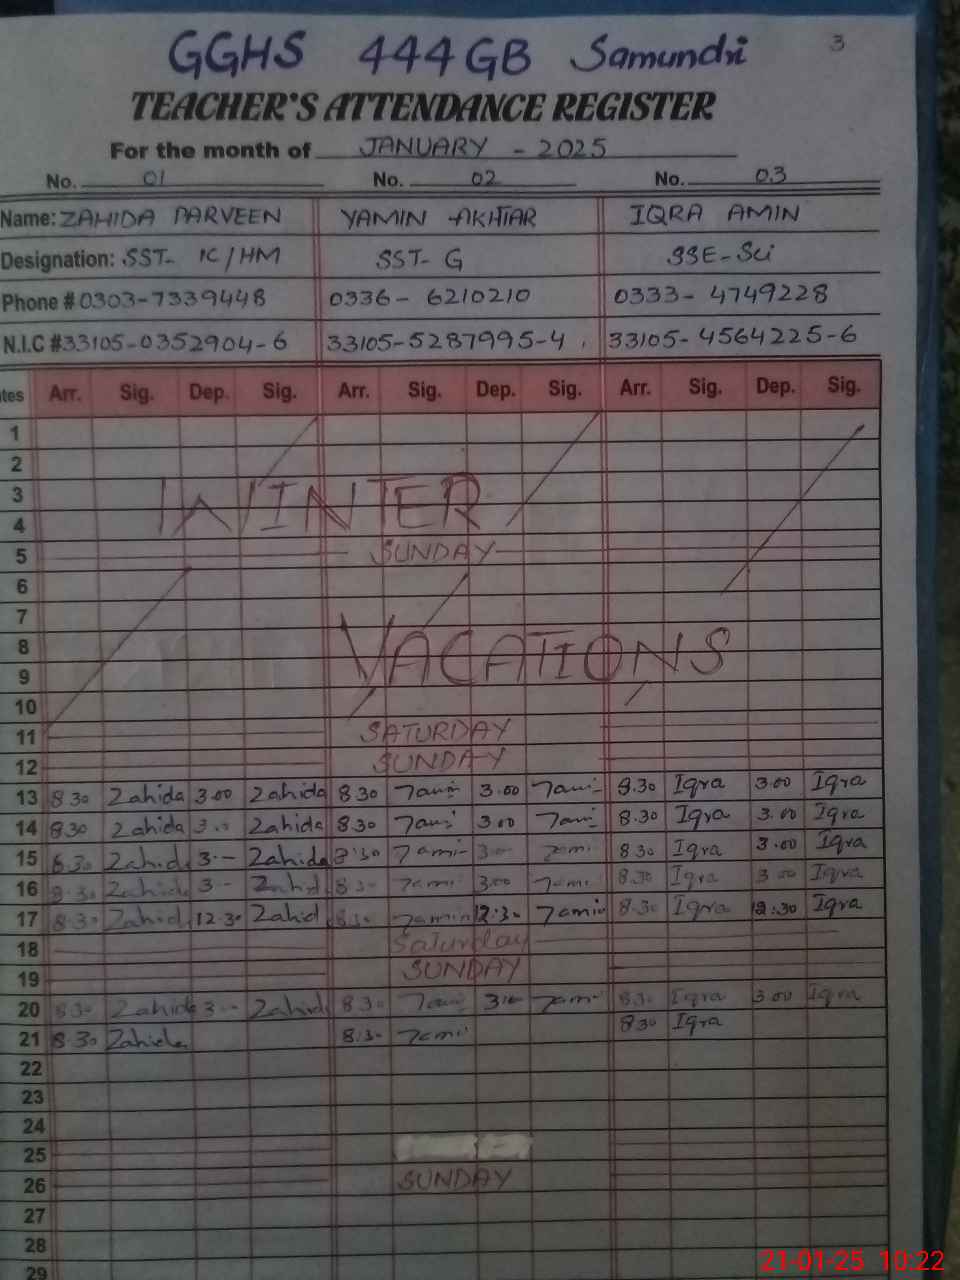 GGHS 444 GB Samundri 3
TEACHER'S ATTENDANCE REGISTER
For the month of JANUARY - 2025
No. 01 No. 02 No. 03
Name: ZAHIDA PARVEEN YAMIN AKHTAR IQRA AMIN
Designation: SST- IC/HM SST- G SSE-Sci
Phone # 0303-7339448 0336- 6210210 0333- 4749228
N.I.C # 33105-0352904-6 33105-5287995-4 33105-4564225-6
tes Arr. Sig. Dep. Sig. Arr. Sig. Dep. Sig. Arr. Sig. Dep. Sig.
1
2
3 WINTER
4
5 SUNDAY
6
7
8 VACATIONS
9
10
11 SATURDAY
12 SUNDAY
13 8 30 Zahida 3.00 Zahida 8 30 3.00 8.30 Iqra 3.00 Iqra
14 8.30 Zahida 3.00 Zahida 8.30 3.00 8.30 Iqra 3.00 Iqra
15 8.30 Zahida 3.- Zahida 8:30 3.00 8 30 Iqra 3.00 Iqra
16 8.30 Zahida 3- Zahida 8.30 3.00 8.30 Iqra 3 00 Iqra
17 8.30 Zahid 12.30 Zahid 8.30 Yamin 12:30 Yamin 8.30 Iqra 12:30 Iqra
18 Saturday
19 SUNDAY
20 8.30 Zahida 3.- Zahida 8.30 8.30 Iqra 3.00 Iqra
21 8.30 Zahida 8.30 8 30 Iqra
22
23
24
25
26 SUNDAY
27
28
29
21-01-25 10:22